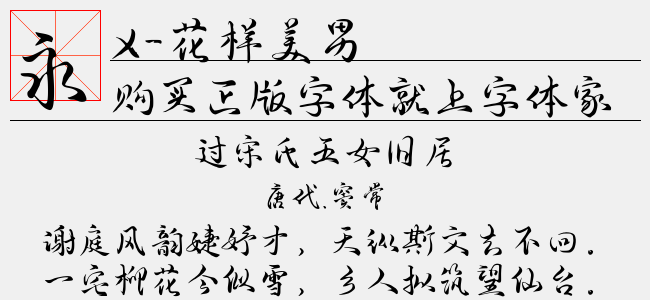 永
X-花样美男
购买正版字体就上字体家
过宋氏五女旧居
唐代.窦常
谢庭风韵婕妤才，天纵斯文去不回．
一宅柳花今似雪，乡人拟筑望仙台．